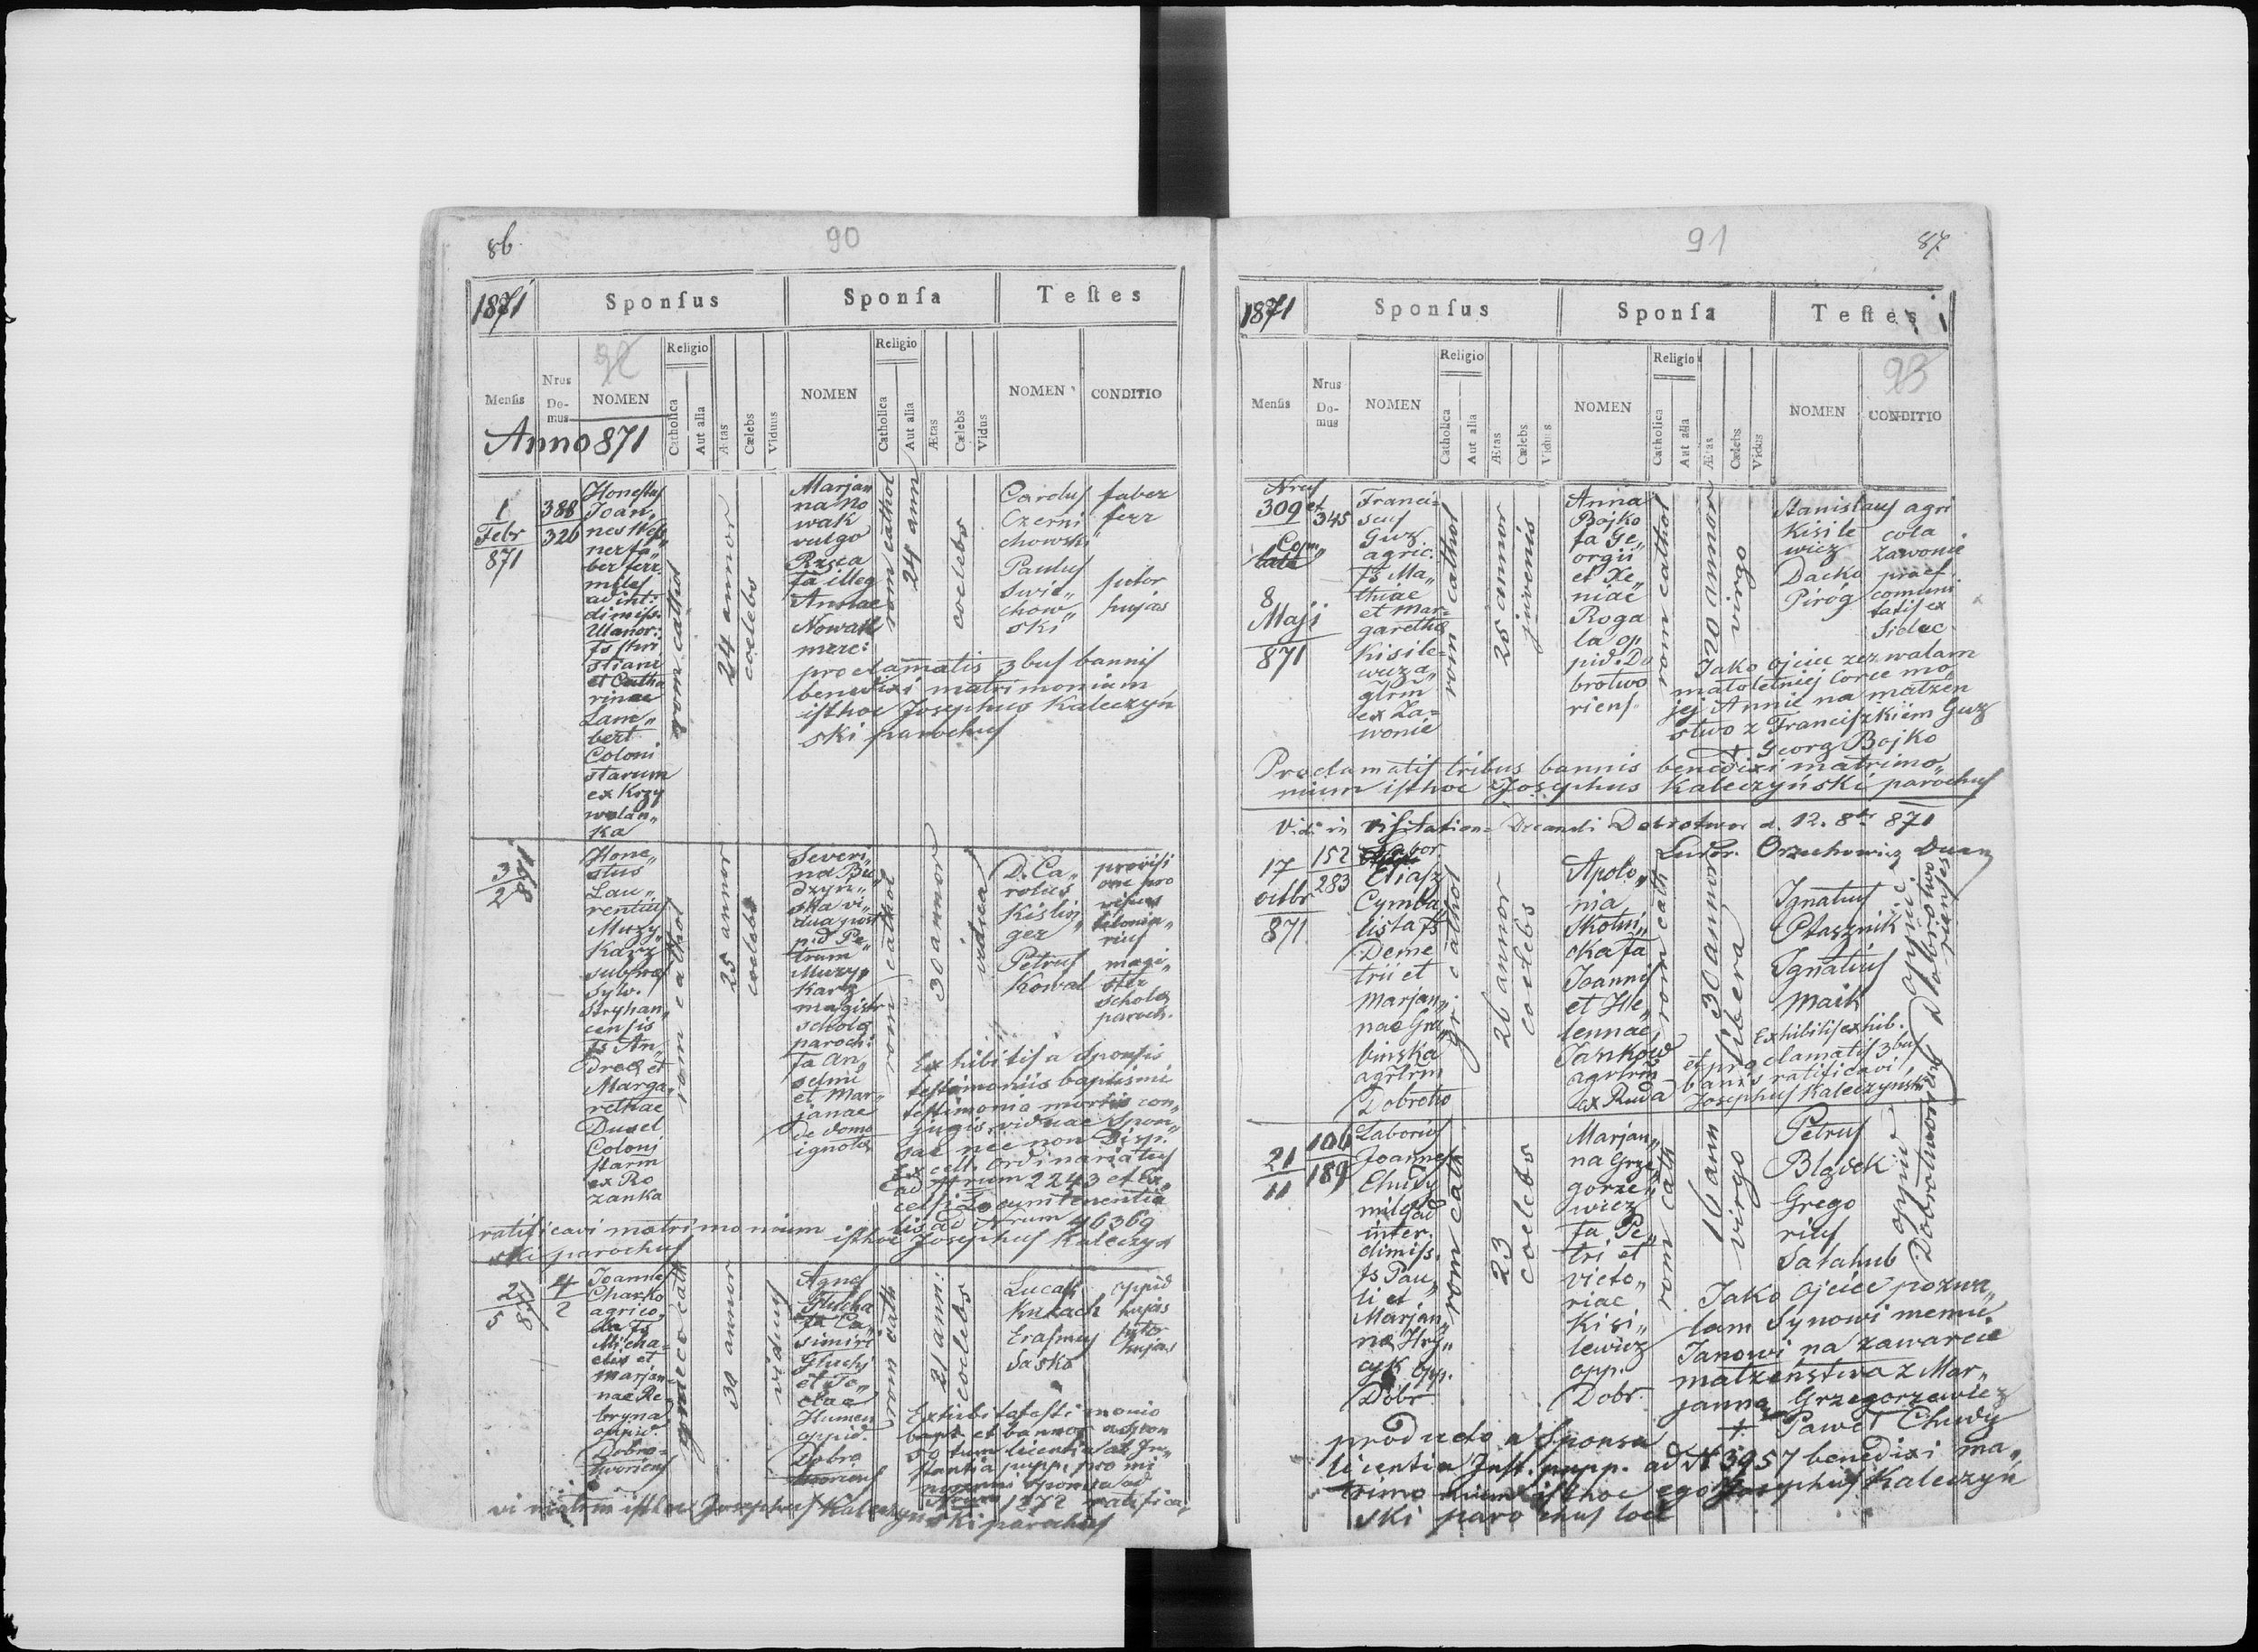 86
90
1871
Sponſus
Sponſa
Teſtes
Menſis
Nrus Do-mus
92
NOMEN
Religio
Catholica
Aut alia
Ætas
Cælebs
Viduus
NOMEN
Religio
Catholica
Aut alia
Ætas
Cælebs
Vidus
NOMEN
CONDITIO
Anno 871
1
Febr
871
388
326
Honestus
Joan„
nes
ber ferr.
miles
ad int:
dimiss.
Ulanor:
fs Chri
stiani
et Catha
rinae
Lam„
bert
Coloni
starum
ex Krzy
wolan„
ka
rom cathol
24 annor
coelebs
Marjan„
na No
wak
vulgo
fa illeg
Annae
Nowak
merc:
rom cathol
24 ann
coelebs
Carolus faber
Czerni ferr
chowski
Paulus
Swie„ sutor
chow„ hujas
ski
proclamatis 3bus bannis
benedixi matrimonium
isthoc Josephus Kaleczyń
ski parochus
3
2
871
Hone„
stus
Lau„
rentius
Muzy„
karz
Sylv.
Stryhan„
censis
fs An„
dreae et
Marga„
rethae
Duxel
Coloni
starm
ex Ro
zanka
rom cathol
25 annor
coelebs
Severi„
na Bu„
dzyn„
ska vi„
dua post
Pe„
trum
Muzy„
karz
magistr
schola
paroch:
fa An„
selmi
et Mar„
janae
de domo
ignota
rom cathol
30 annor
vidua
D. Ca„
rolus
Kislin„
ger
Petrus magi„
Kowal ster
schola
paroch.
Exhibitis a Sponsis
testimoniis baptismi
testimonia mortis con„
jugis viduae Spon„
sae nec non Disp.
Excell. Ordinariatus
ad Nrum 2243 et Ex„
celsi Locumtenentia
lis ad Nrum 46369
ratificavi matrimonium
isthoc Josephus Kaleczyń
ski parochus
2
5
871
4
2
Joannes
Charko
agrico„
la fs
Micha„
elis et
Marjan„
nae Re„
bryna
oppid.
Dobro„
tworiens
graeco cath
30 annor
viduus
Agnes
Glucha
fa Ca„
simiri
Gluchj
et Te„
clae
Humen
oppid.
Dobro
tworiens
rom cath
21 ann:
coelebs
Lucas oppid
Kukach hujas
Erasmus sutor
Sasko hujas
Exhibita testimonio
bapt. et bannor.
licentia
stantia pupp. pro mi
norenni sponsa ad
Nrum 1272 ratifica„
vi matrm isthoc Josephus Kaleczyń
ski parochus
91
87
1871
Sponſus
Sponſa
Teſtes
Menſis
Nrus Do-mus
NOMEN
Religio
Catholica
Aut alia
Ætas
Cælebs
Vidus
NOMEN
Religio
Catholica
Aut alia
Ætas
Cælebs
Vidus
NOMEN
93
CONDITIO
Nrus
309 et
345
8
Maji
871
Franci=
scus
Guz
agric.
fs Ma„
thiae
et Mar=
garetha
Kisile=
wicza„
ex Za=
wonie
rom cathol
25 annor
juvenis
Anna
Bojko
fa Ge„
orgii
et Xe„
niae
Roga
la op
pid. Do
brotwo
riens
rom cathol
20 annor
virgo
Stanislaus agri
Kisile cola
wicz Zawonie
Dacko praef
Pirog communi
tatis ex
Sielec
Jako ojciec zezwalam
małoletniej córce mo„
jej Annie na małżeń
stwo z Franciszkiem Guz
+ Georg Bojko
Proclamatis tribus bannis benedixi matrimo„
nium isthoc Josephus Kaleczyński parochus
Vidi in Visitatione Decanali Dobrotwor d. 12. 8br 871
Orzechowicz
17
octbr
871
152
283
Eliasz
Cymba
lista fs
Deme
trii et
Marjan„
nae Gra„
binska
Dobrotw
gr. cathol
26 annor
coelebs
Apolo„
nia
Skotni„
cka fa
Joannis
et He„
lennae
Jaskow
ex Ruda
rom cath
30 annor
libera
Ignatius
Ptasznik
Ignatius
Maik
Exhibitis exhib.
et proclamatis 3bus
bannis ratificavi
Josephus Kaleczyński
21
11
106
189
Laborius
Joannes
Chudy
miles ad
inter.
dimiss.
fs Pau„
li et
Marjan„
na Hry„
cyk opp.
Dobr
rom cath
23
coelebs
Marjan„
na Grze„
gorze„
wicz
fa Pe„
tri et
Victo„
riae
Kisi„
lewicz
opp.
Dobr.
rom cath
16 ann
virgo
Petrus
Blązek
Grego
rius
Salahub
oppid
Dobrotworiens
Jako Ojciec pozwa„
lam Synowi memu
Janowi na zawarcie
małżeństwa z Mar„
janną Grzegorzewicz
+ Paweł Chudy
producto a Sponsa
licentia Inst. pupp. ad N 3957 benedixi ma„
trimonium isthoc ego Josephus Kaleczyń
ski parochus loci